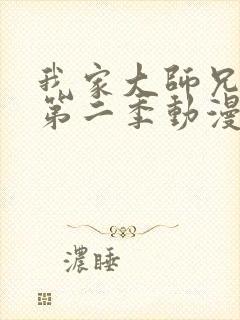 我家大師兄
第二季動漫
濃睡